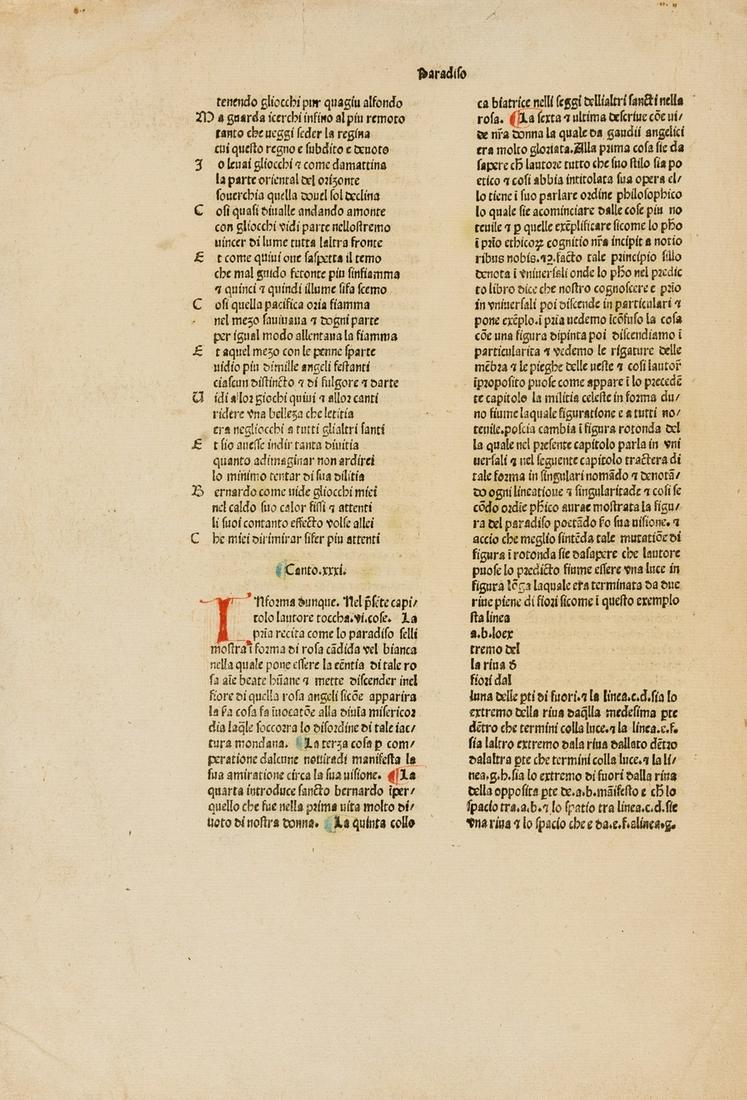 Paradiso
tenendo gliocchi pur quagiu alfondo
M a guarda icerchi infino al piu remoto
tanto che ueggi seder la regina
cui questo regno e subdito e deuoto
J o leuai gliocchi ⁊ come damattina
la parte oriental del orizonte
souerchia quella douel sol declina
C osi quasi diualle andando amonte
con gliocchi vidi parte nellostremo
uincer di lume tutta laltra fronte
E t come quiui oue saspetta il temo
che mal guido fetonte piu sinfiamma
⁊ quinci ⁊ quindi illume sifa scemo
C osi quella pacifica oria fiamma
nel mezo sauiuaua ⁊ dogni parte
per igual modo allentaua la fiamma
E t aquel mezo con le penne sparte
uidio piu dimille angeli festanti
ciascun distincto ⁊ di fulgore ⁊ darte
U idi a lor giochi quiui ⁊ allor canti
ridere vna belleza che letitia
era negliocchi a tutti glialtri santi
E t sio auesse indir tanta diuitia
quanto adimaginar non ardirei
lo minimo tentar di sua dilitia
B ernardo come uide gliocchi miei
nel caldo suo calor fissi ⁊ attenti
li suoi contanto effecto volse allei
C he miei dirimirar sifer piu attenti
Canto.xxxi.
INforma dunque. Nel p̄sēte capi/
tolo lautore toccha.vi.cose. La
pria recita come lo paradiso selli
mostra ī forma di rosa cādida vel bianca
nella quale pone essere la eēntia di tale ro
sa aīe beate hūane ⁊ mette discender inel
fiore di quella rosa angeli sicōe apparira
la cosa fa īuocatōe alla diuīa misericor
dia laq̄le soccorra lo disordine di tale iac/
tura mondana. La terza cosa p com/
peratione dalcune nouitadi manifesta la
sua amiratione circa la sua uisione. ¶La
quarta introduce sancto bernardo īper/
quello che fue nella prima uita molto di/
uoto di nostra donna. La quinta collo
ca biatrice nelli seggi dellialtri sancti nella
rosa. ¶La sexta ⁊ ultima descriue cōe ui/
de nr̄a donna la quale da gaudii angelici
era molto gloriata. Alla prima cosa sie da
sapere ch̄ lautore tutto che suo stilo sia po
etico ⁊ cosi abbia intitolata sua opera el/
lo tiene ī suo parlare ordine philosophico
lo quale sie acominciare dalle cose piu no
teuile ⁊ p quelle exēplificare sicome lo pho
ī prīo ethicoꝝ cognitio nr̄a incipit a notio
ribus nobis.⁊.facto tale principio sillo
denota ī vniuersali onde lo pho nel predic
to libro dice che nostro cognoscere e prīo
in vniuersali poi discende in particulari ⁊
pone exēplo.ī pria uedemo īcōfuso la cosa
cōe una figura dipinta poi discendiamo ī
particularita ⁊ vedemo le rigature delle
mēbra ⁊ le pieghe delle ueste ⁊ cosi lautor
īproposito puose come appare ī lo precedē
te capitolo la militia celeste in forma du/
no fiume laquale figuratione e a tutti no/
teuile.poscia cambia ī figura rotonda del
la quale nel presente capitolo parla in vni
uersali ⁊ nel seguente capitolo tractera di
tale forma in singulari nomādo ⁊ denotā/
do ogni lineatione ⁊ singularitade ⁊ cosi se
cōdo ordīe ph̄ico aurae mostrata la figu/
ra del paradiso poetādo fo sua uisione. ⁊
accio che meglio sintēda tale mutatiōe di
figura ī rotonda sie dasapere che lautore
puose lo predicto fiume essere vna luce in
figura lōga laquale era terminata da due
riue piene di fiori sicome ī questo exemplo
sta linea
a.b.loex
tremo del
la riua d
fiori dal
luna delle pti di fuori.⁊ la linea.c.d.sia lo
extremo della riua daq̄lla medesima pte
dētro che termini colla luce.⁊ la linea.e.f.
sia laltro extremo dala riua dallato dētro
dalaltra pte che termini colla luce.⁊ la li/
nea.g.h.sia lo extremo di fuori dalla riua
della opposita pte de.a.b.māifesto e ch̄ lo
spacio tra.a.b.⁊ lo spatio tra linea.c.d.sie
vna riua ⁊ lo spacio che e da.e.f.alinea.g.